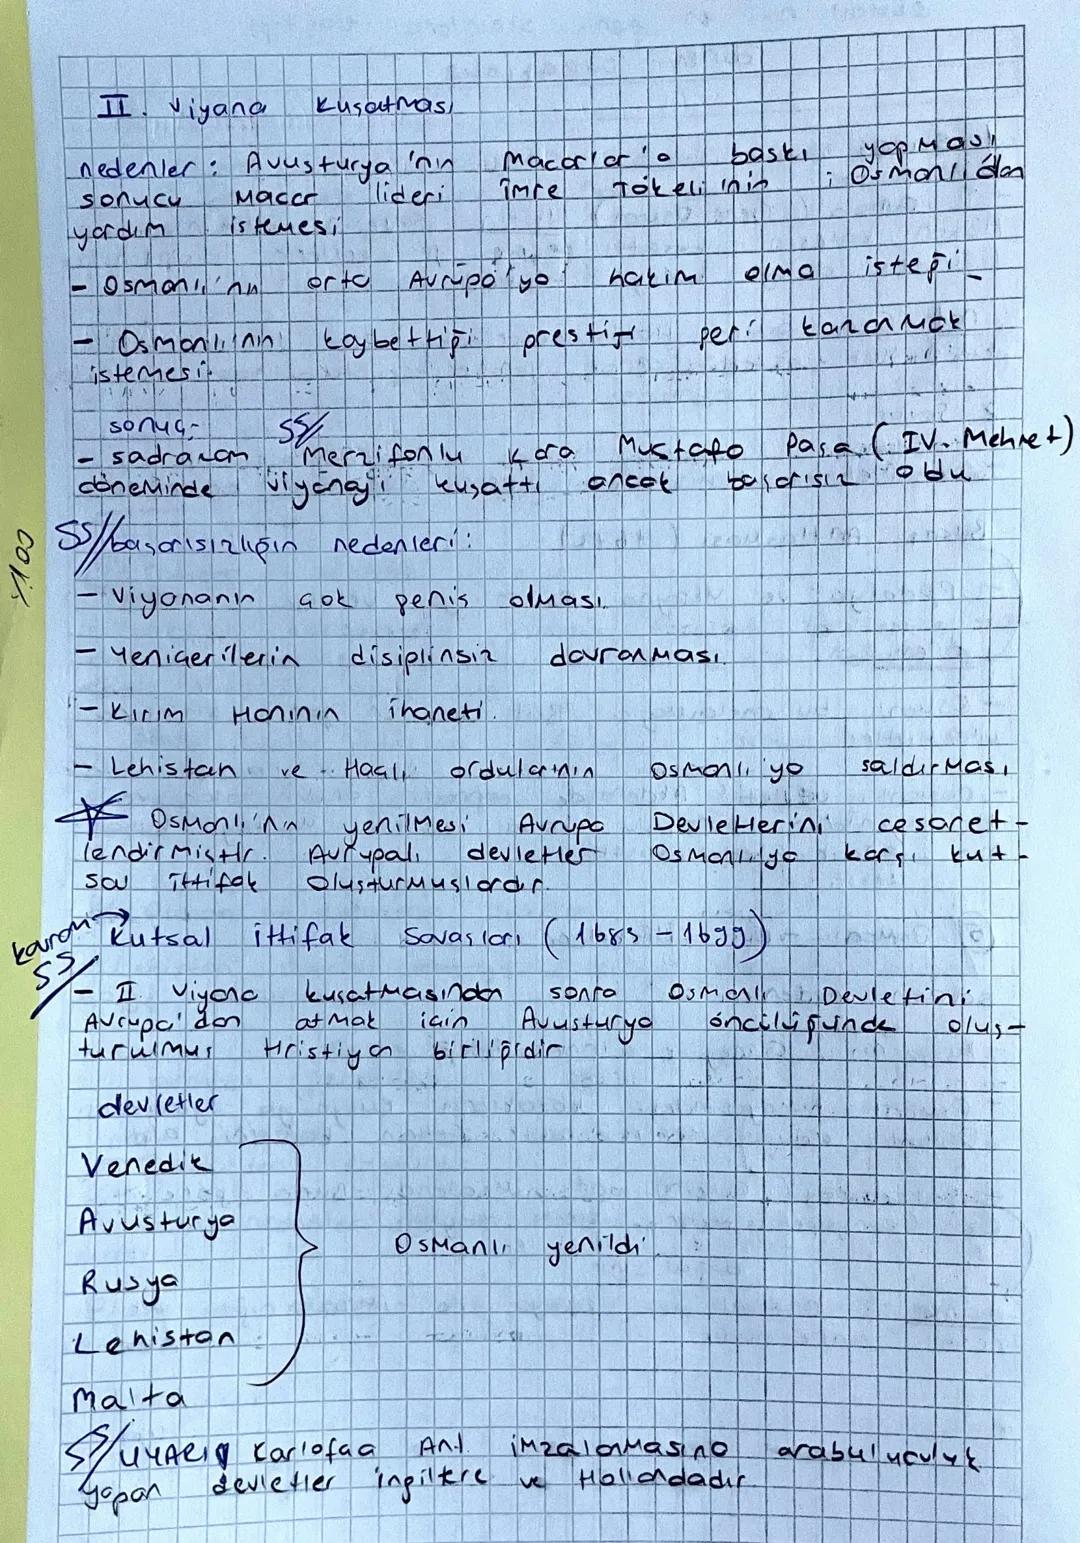 II. Viyana Kuşatması
nedenler: Avusturya'nın Macarlar'a baskı yapması
sonucu Macar lideri İmre Tökeli'nin Osmanlı'dan
yardım istemesi
- Osmanlı'nın orta Avrupa'ya hakim olma isteği
- Osmanlı'nın kaybettiği prestiji geri kazanmak
istemesi
sonuç:
SS//
- sadrazam Merzifonlu Kara Mustafa Paşa (IV. Mehmet)
döneminde Viyana'yı kuşattı ancak başarısız oldu
%100
SS// başarısızlığın nedenleri:
- Viyananın çok geniş olması.
- Yeniçerilerin disiplinsiz davranması.
- Kırım Hanının ihaneti.
- Lehistan ve Haçlı ordularının Osmanlı'ya saldırması
Osmanlı'nın yenilmesi Avrupa Devletlerini cesaret-
lendirmiştir. Avrupalı devletler Osmanlıya karşı kut-
sal ittifak oluşturmuşlardır.
Kutsal İttifak Savaşları (1683-1699)
SS//
- II Viyana kuşatmasından sonra Osmanlı Devletini
Avrupa'dan atmak için Avusturya öncülüğünde oluş-
turulmuş Hristiyan birliğidir
devletler
Venedik
Avusturya
Rusya
Lehistan
Malta
Osmanlı yenildi
SS/ UYARI Karlofça Ant imzalanmasına arabuluculuk
yapan devletler İngiltere ve Hollandadır.